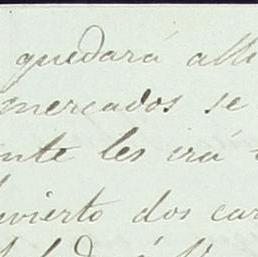 quedará alli
mercados se
nte les irá
vierto dos car